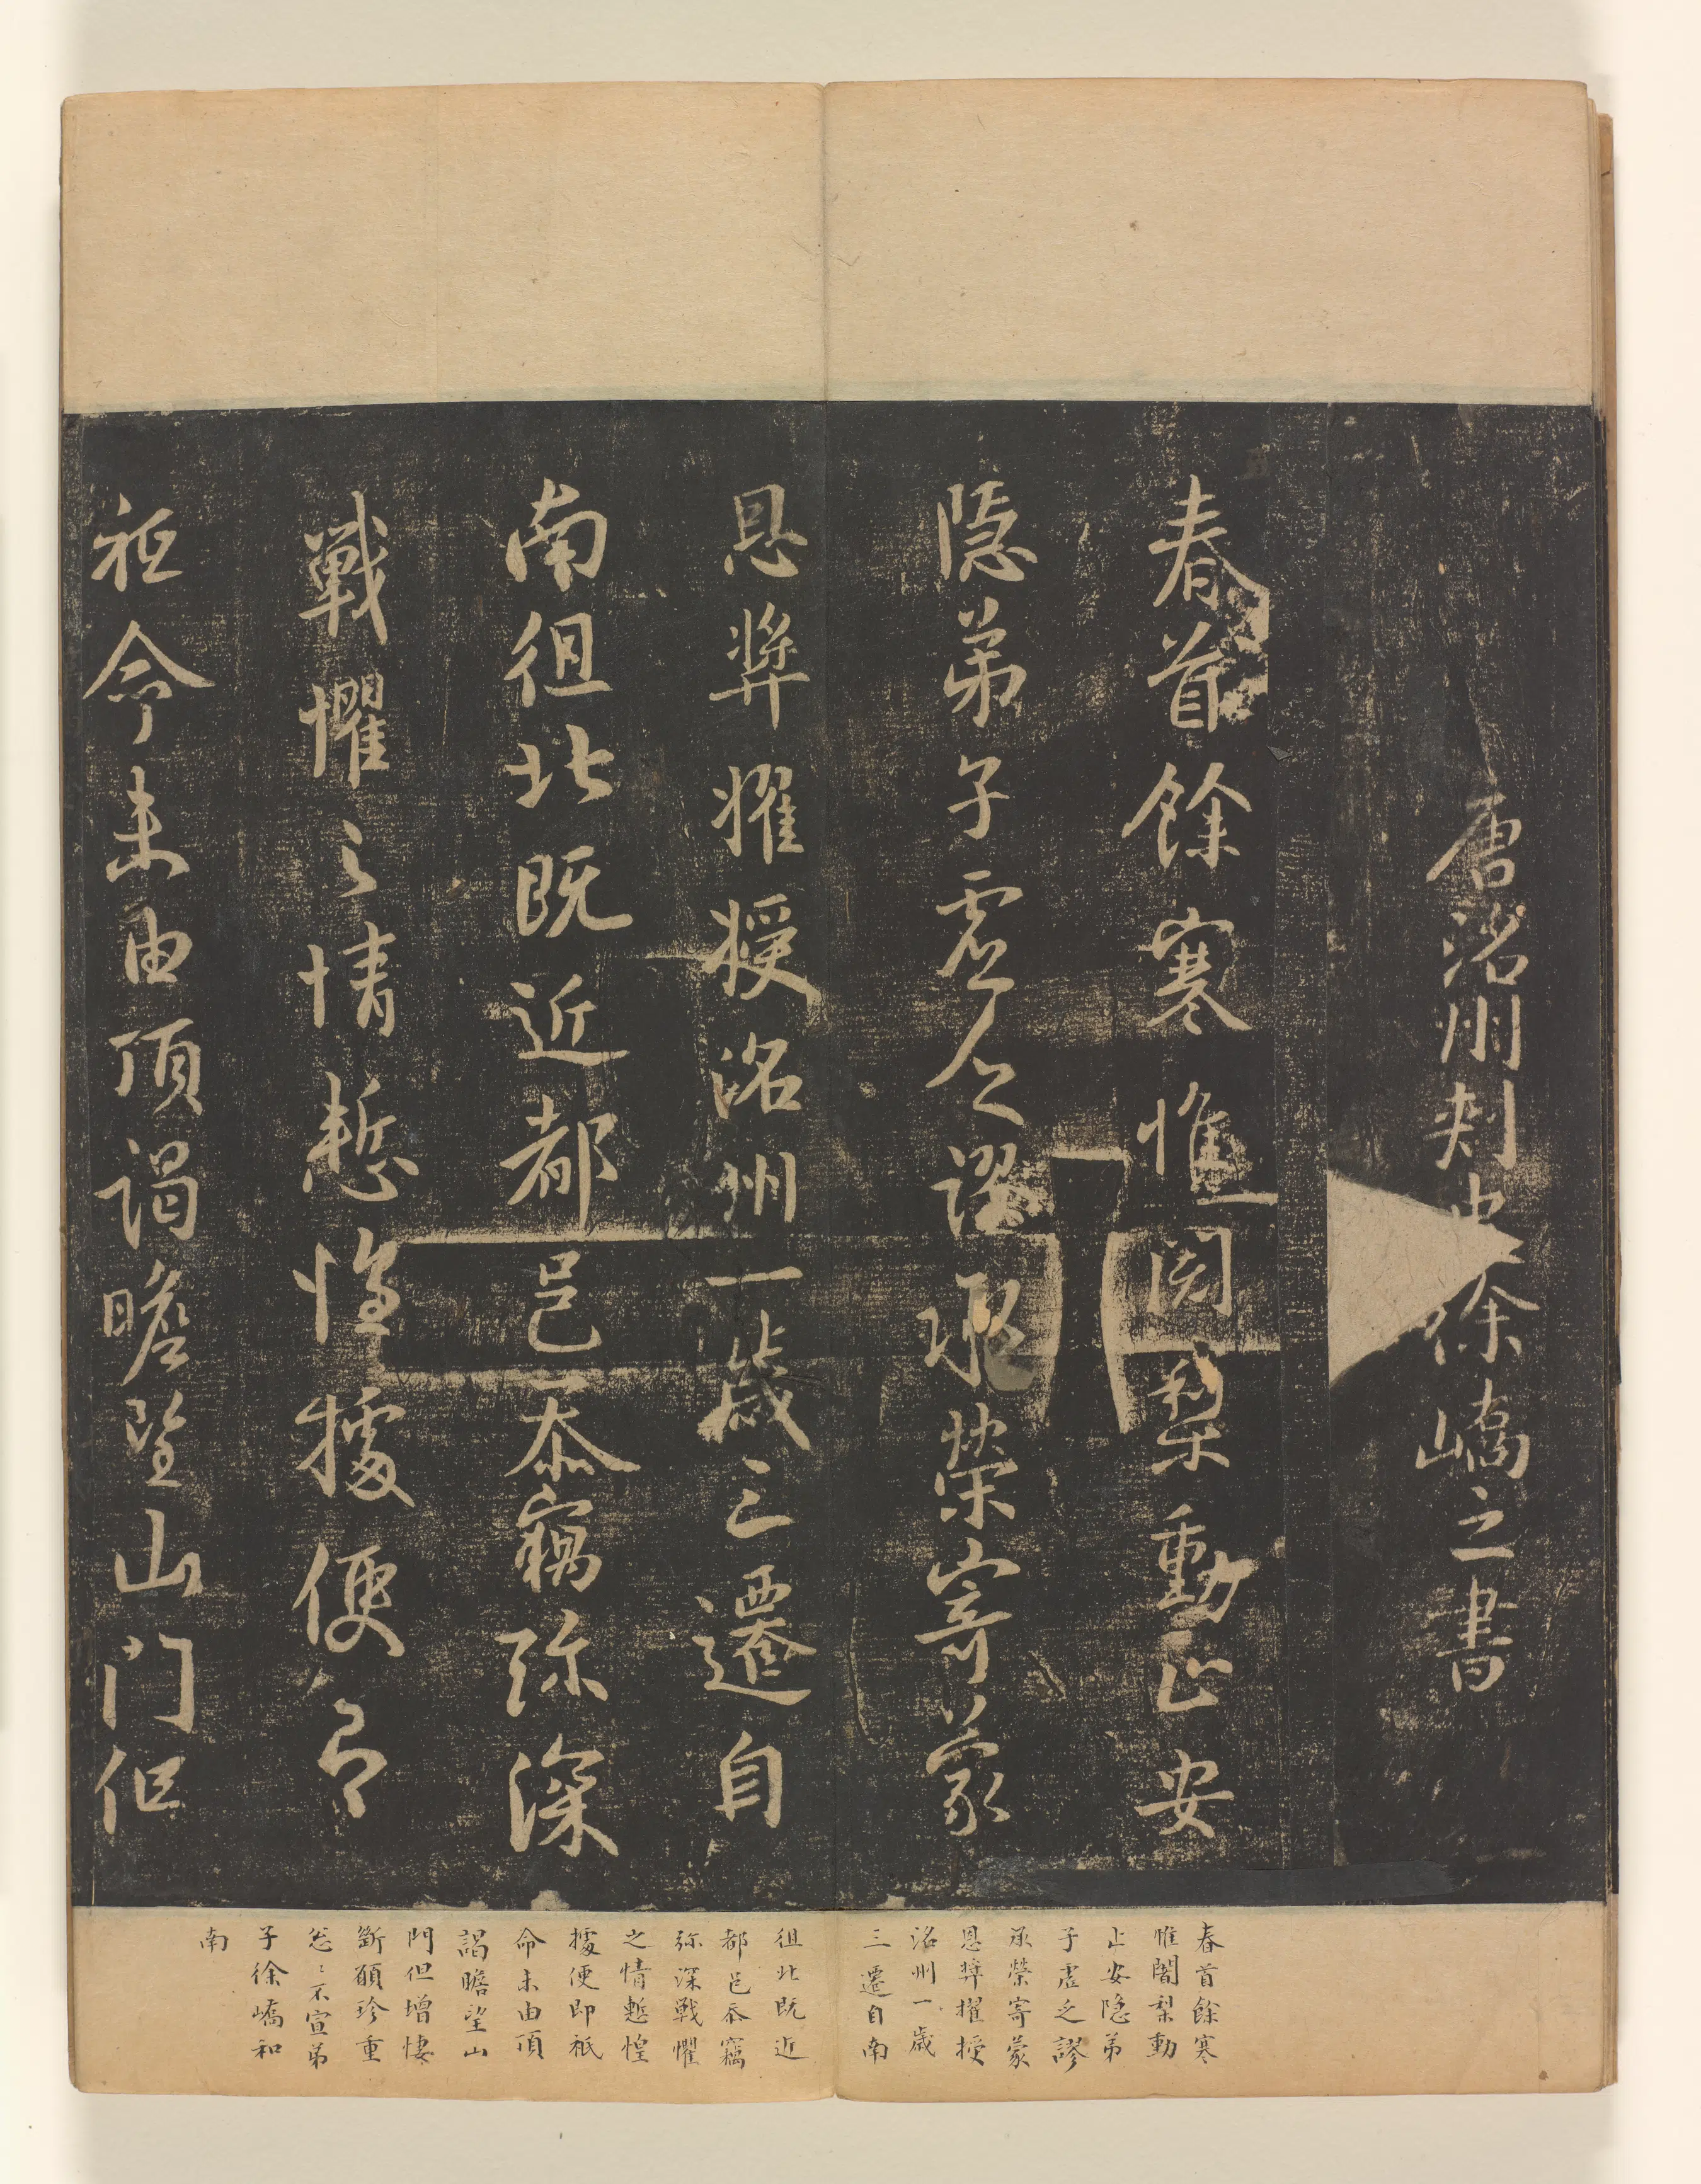 唐洺州刺史徐嶠之書
春首餘寒惟闍梨動止安
隐弟子虚乏謬承榮寄蒙
恩奬擢授洺州一歲三遷自
南徂北既近都邑忝竊弥深
戰懼之情慙惶據便即
祗命未由頂謁瞻望山门但
春首餘寒
惟闍梨動
止安隐弟
子虚乏謬
承榮寄蒙
恩奬擢授
洺州一歲
三遷自南
徂北既近
都邑忝竊
弥深戰懼
之情慙惶
據便即祇
命未由頂
謁瞻望山
門但增悽
斷願珍重
怱〻不宣弟
子徐嶠和
南